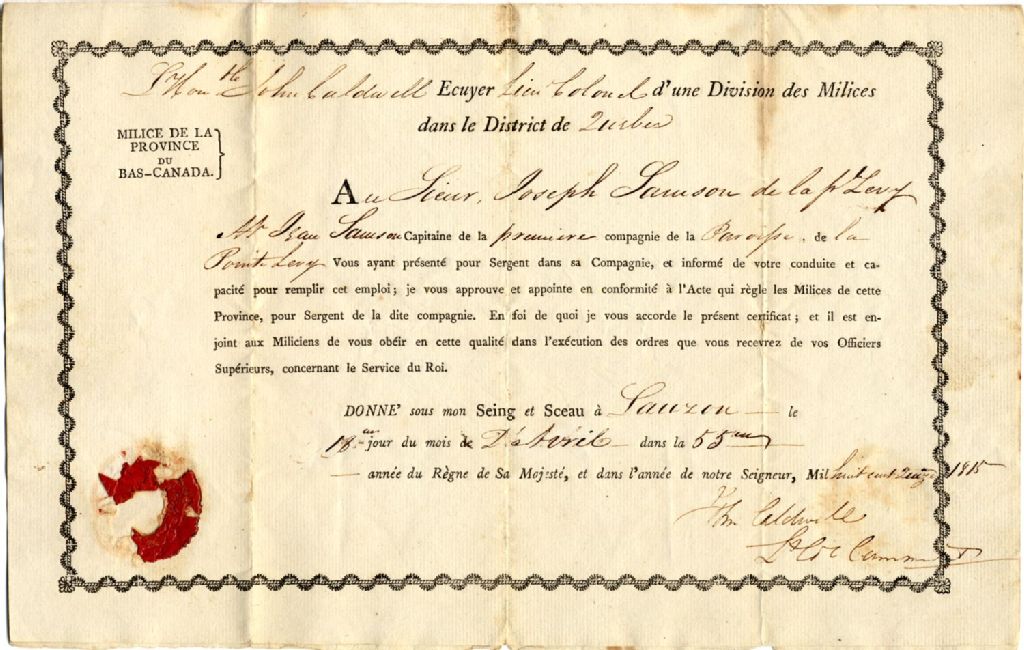 L'Hon.ble John Caldwell Ecuyer Lieu Colonel d'une Division des Milices
dans le District de Quebec
MILICE DE LA
PROVINCE
DU
BAS-CANADA.
Au Sieur, Joseph Samson de la pte Levy
Mr Jean Samson Capitaine de la première compagnie de la Paroisse de la
Pointe Levy Vous ayant présenté pour Sergent dans sa Compagnie, et informé de votre conduite et ca-
pacité pour remplir cet emploi; je vous approuve et appointe en conformité à l'Acte qui règle les Milices de cette
Province, pour Sergent de la dite compagnie. En foi de quoi je vous accorde le présent certificat; et il est en-
joint aux Miliciens de vous obéir en cette qualité dans l'exécution des ordres que vous recevrez de vos Officiers
Supérieurs, concernant le Service du Roi.
DONNE' sous mon Seing et Sceau à Lauzon le
18 jour du mois de D'Avril dans la 55
année du Règne de Sa Majesté, et dans l'année de notre Seigneur, Mil huit cent Quinze 1815
Jhn Caldwell
Lt Col Comm